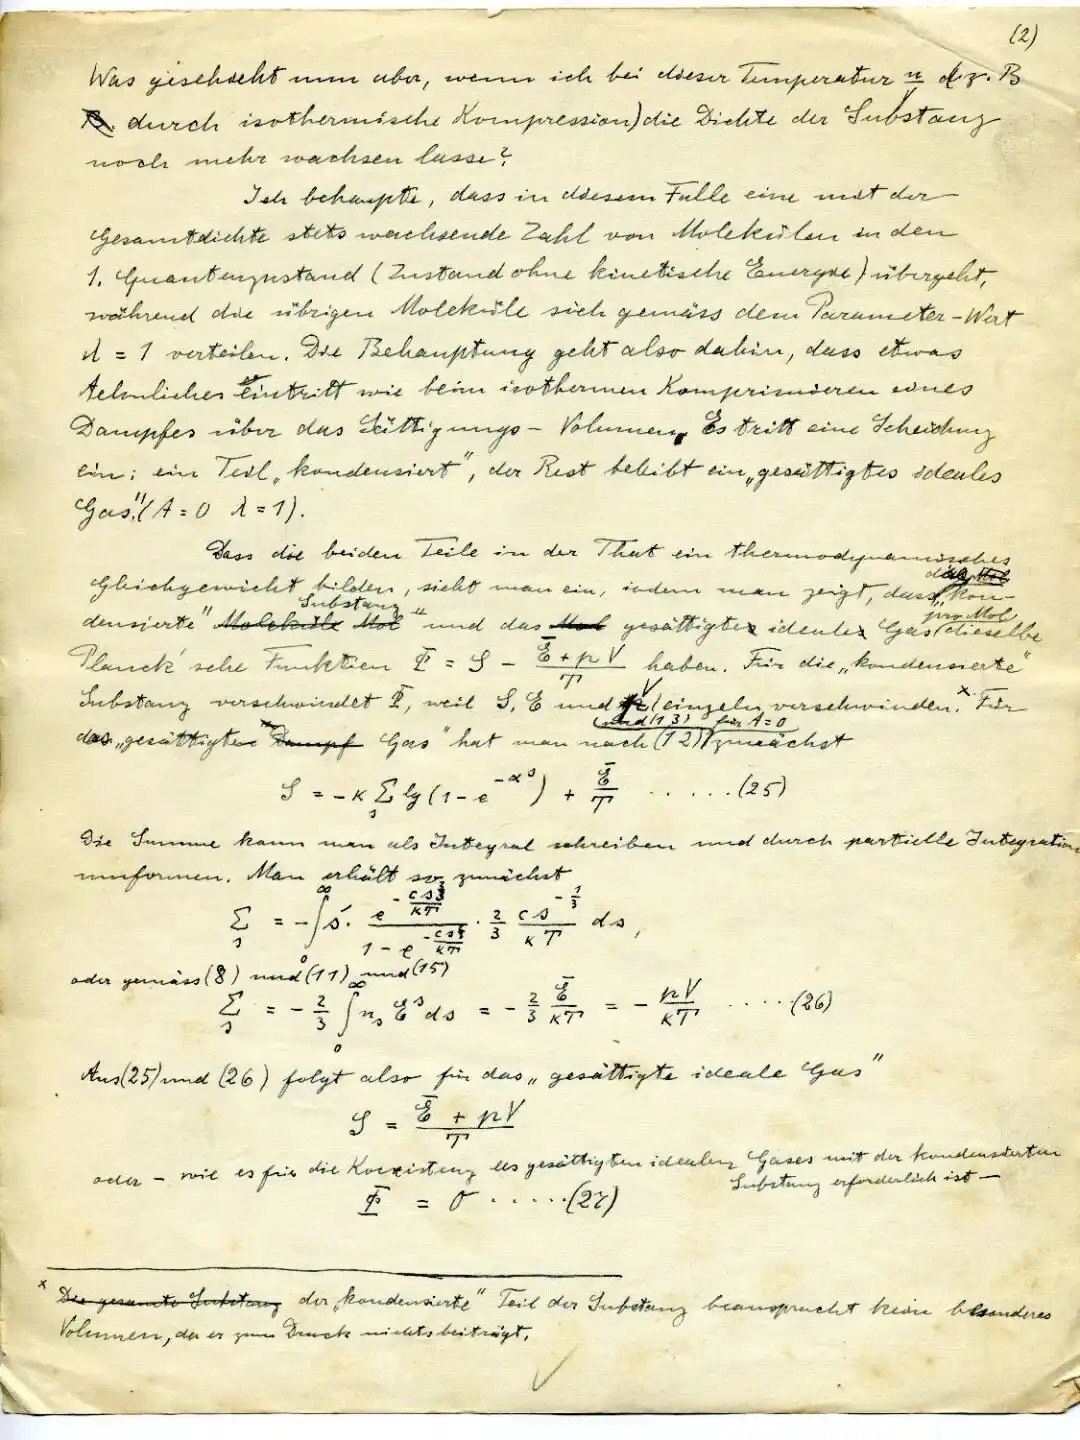 (2)
Was geschieht nun aber, wenn ich bei dieser Temperatur n (z. B
B. durch isothermische Kompression) die Dichte der Substanz
noch mehr wachsen lasse?
Ich behaupte, dass in diesem Falle eine mit der
Gesamtdichte stets wachsende Zahl von Molekülen in den
1. Quantenzustand (Zustand ohne kinetische Energie) übergeht,
während die übrigen Moleküle sich gemäss dem Parameter-Wert
λ = 1 verteilen. Die Behauptung geht also dahin, dass etwas
Aehnliches eintritt wie beim isothermen Komprimieren eines
Dampfes über das Sättigungs-Volumen. Es tritt eine Scheidung
ein; ein Teil „kondensiert", der Rest bleibt ein „gesättigtes ideales
Gas". (A = 0 λ = 1).
Dass die beiden Teile in der That ein thermodynamisches
Gleichgewicht bilden, sieht man ein, indem man zeigt, dass die „kon-
densierte" Moleküle Mol Substanz" und das Mol gesättigte ideale Gas pro Mol dieselbe
Planck'sche Funktion Φ = S - (Ē + pV)/T haben. Für die „kondensierte"
Substanz verschwindet Φ, weil S, E und V einzeln verschwinden.ˣ Für
das „gesättigte Dampf Gas" hat man nach (12) und (13) für A = 0 zunächst
S = -κ Σₛ lg (1 - e^(-αˢ)) + Ē/T . . . . . . (25)
Die Summe kann man als Integral schreiben und durch partielle Integration
umformen. Man erhält so zunächst
Σₛ = - ∫₀^∞ s · e^(-cs^(2/3)/κT) / (1 - e^(-cs^(2/3)/κT)) · 2/3 cs^(-1/3)/κT ds,
oder gemäss (8) und (11) und (15)
Σₛ = - 2/3 ∫₀^∞ nₛ Eˢ ds = - 2/3 Ē/κT = - pV/κT . . . . . (26)
Aus (25) und (26) folgt also für das „gesättigte ideale Gas"
S = (Ē + pV)/T
oder - wie es für die Koexistenz des gesättigten idealen Gases mit der kondensierten
Substanz erforderlich ist -
Φ = 0 . . . . . . (27)
ˣ Die gesamte Substanz der „kondensierte" Teil der Substanz beansprucht kein besonderes
Volumen, da er zum Druck nichts beiträgt.